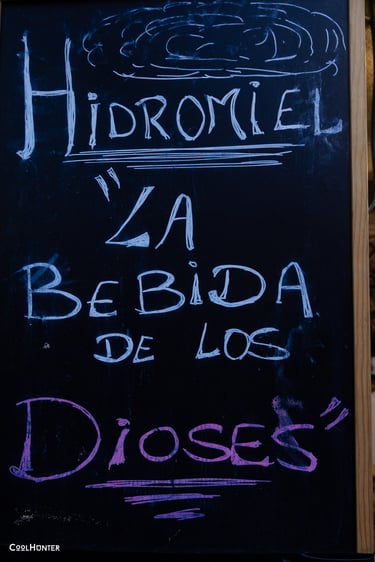 HiDROMiEL
"LA
BEBiDA
DE LOS
DiOSES"
COOLHUNTER